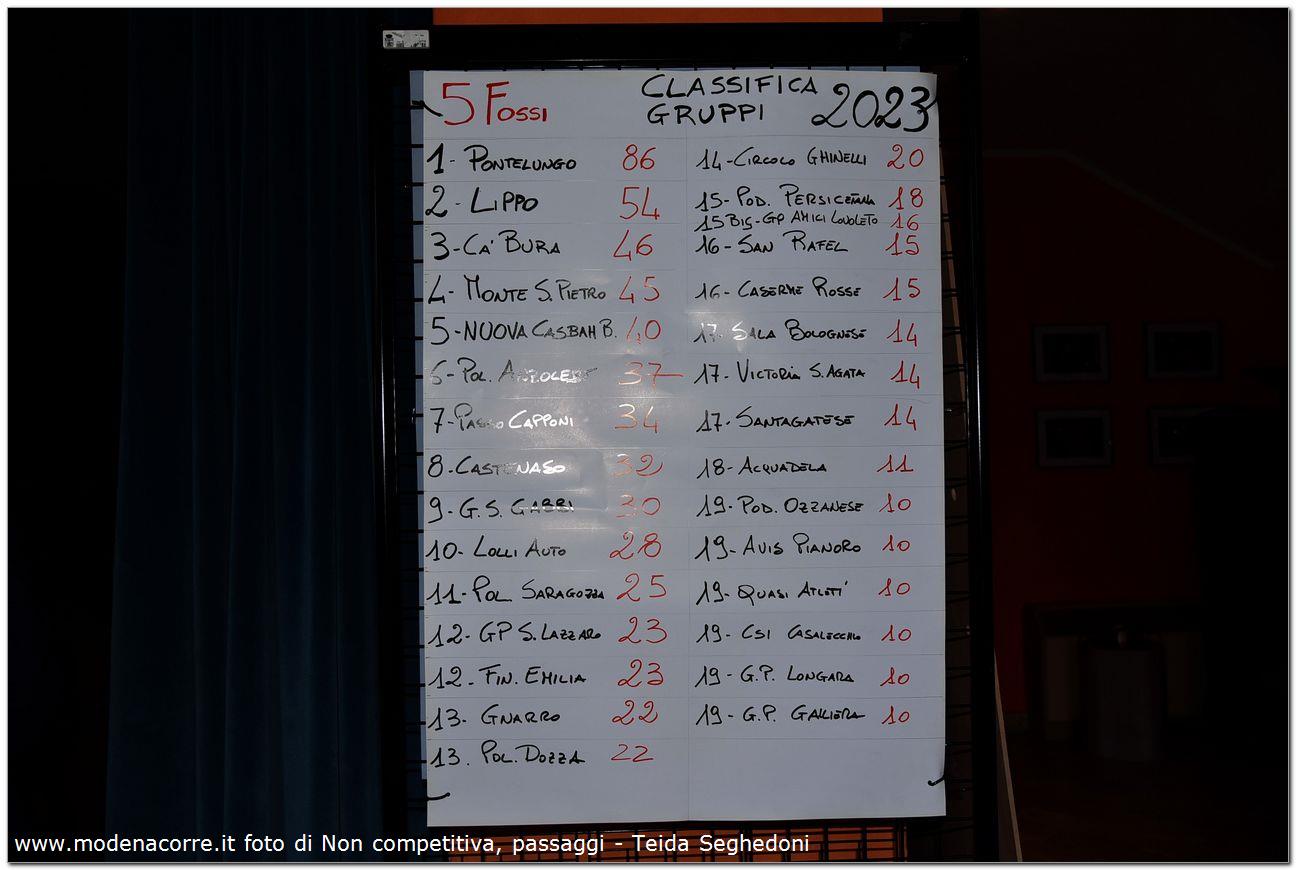 5 Fossi
CLASSIFICA
GRUPPI
2023
1- PONTELUNGO 86
2- LIPPO 54
3- CA' BURA 46
4- MONTE S. PIETRO 45
5- NUOVA CASBAH B. 40
6- POL. 37
7- PASSO CAPPONI 34
8- CASTENASO 32
9- G. S. GABBI 30
10- LOLLI AUTO 28
11- POL SARAGOZZA 25
12- GP S. LAZZARO 23
12. FIN. EMILIA 23
13- GNARRO 22
13. POL. DOZZA 22
14- CIRCOLO GHINELLI 20
15- POD. PERSICETANA 18
15 BIS- GP AMICI LOVOLETO 16
16- SAN RAFEL 15
16- CASERME ROSSE 15
17- SALA BOLOGNESE 14
17- VICTORIA S. AGATA 14
17- SANTAGATESE 14
18- ACQUADELA 11
19- POD. OZZANESE 10
19- AVIS PIANORO 10
19- QUASI ATLETI' 10
19- CSI CASALECCHIO 10
19- G.P. LONGARA 10
19- G.P. GALLIERA 10
www.modenacorre.it foto di Non competitiva, passaggi - Teida Seghedoni